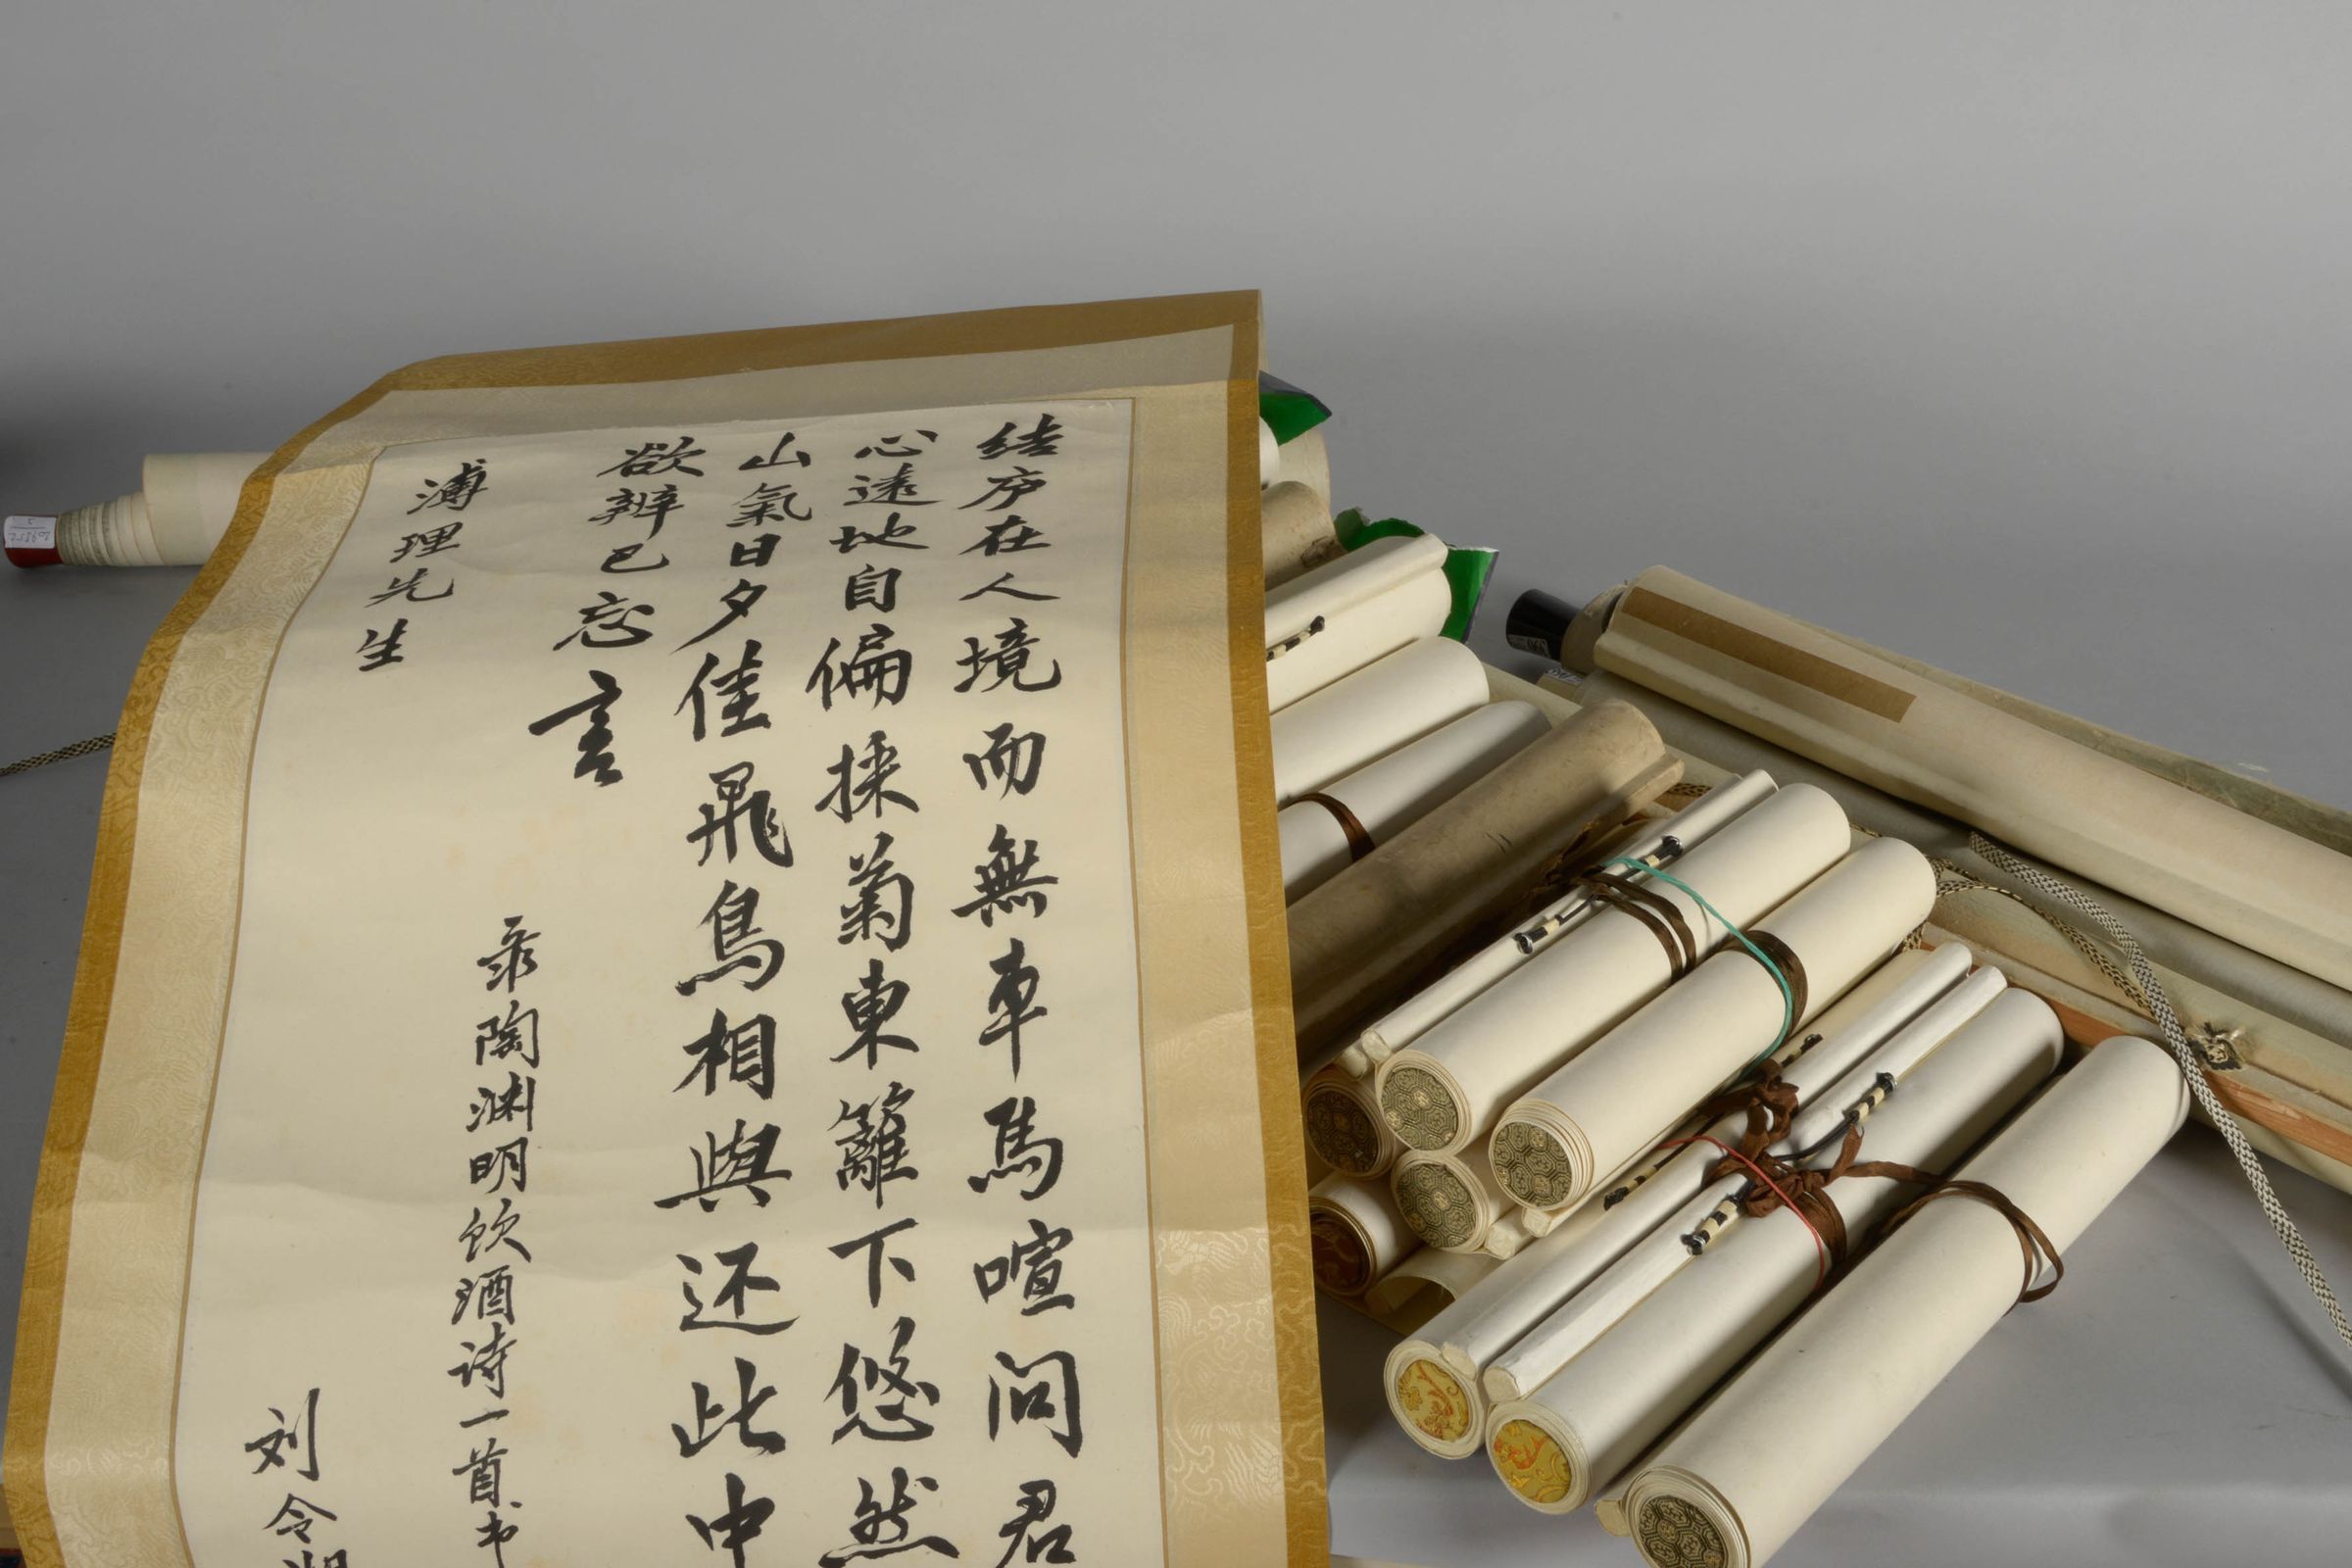 结庐在人境而無車馬喧问君
心遠地自偏採菊東籬下悠然
山氣日夕佳飛鳥相與还此中
欲辨已忘言
录陶渊明饮酒诗一首书
溥理先生
刘令湖